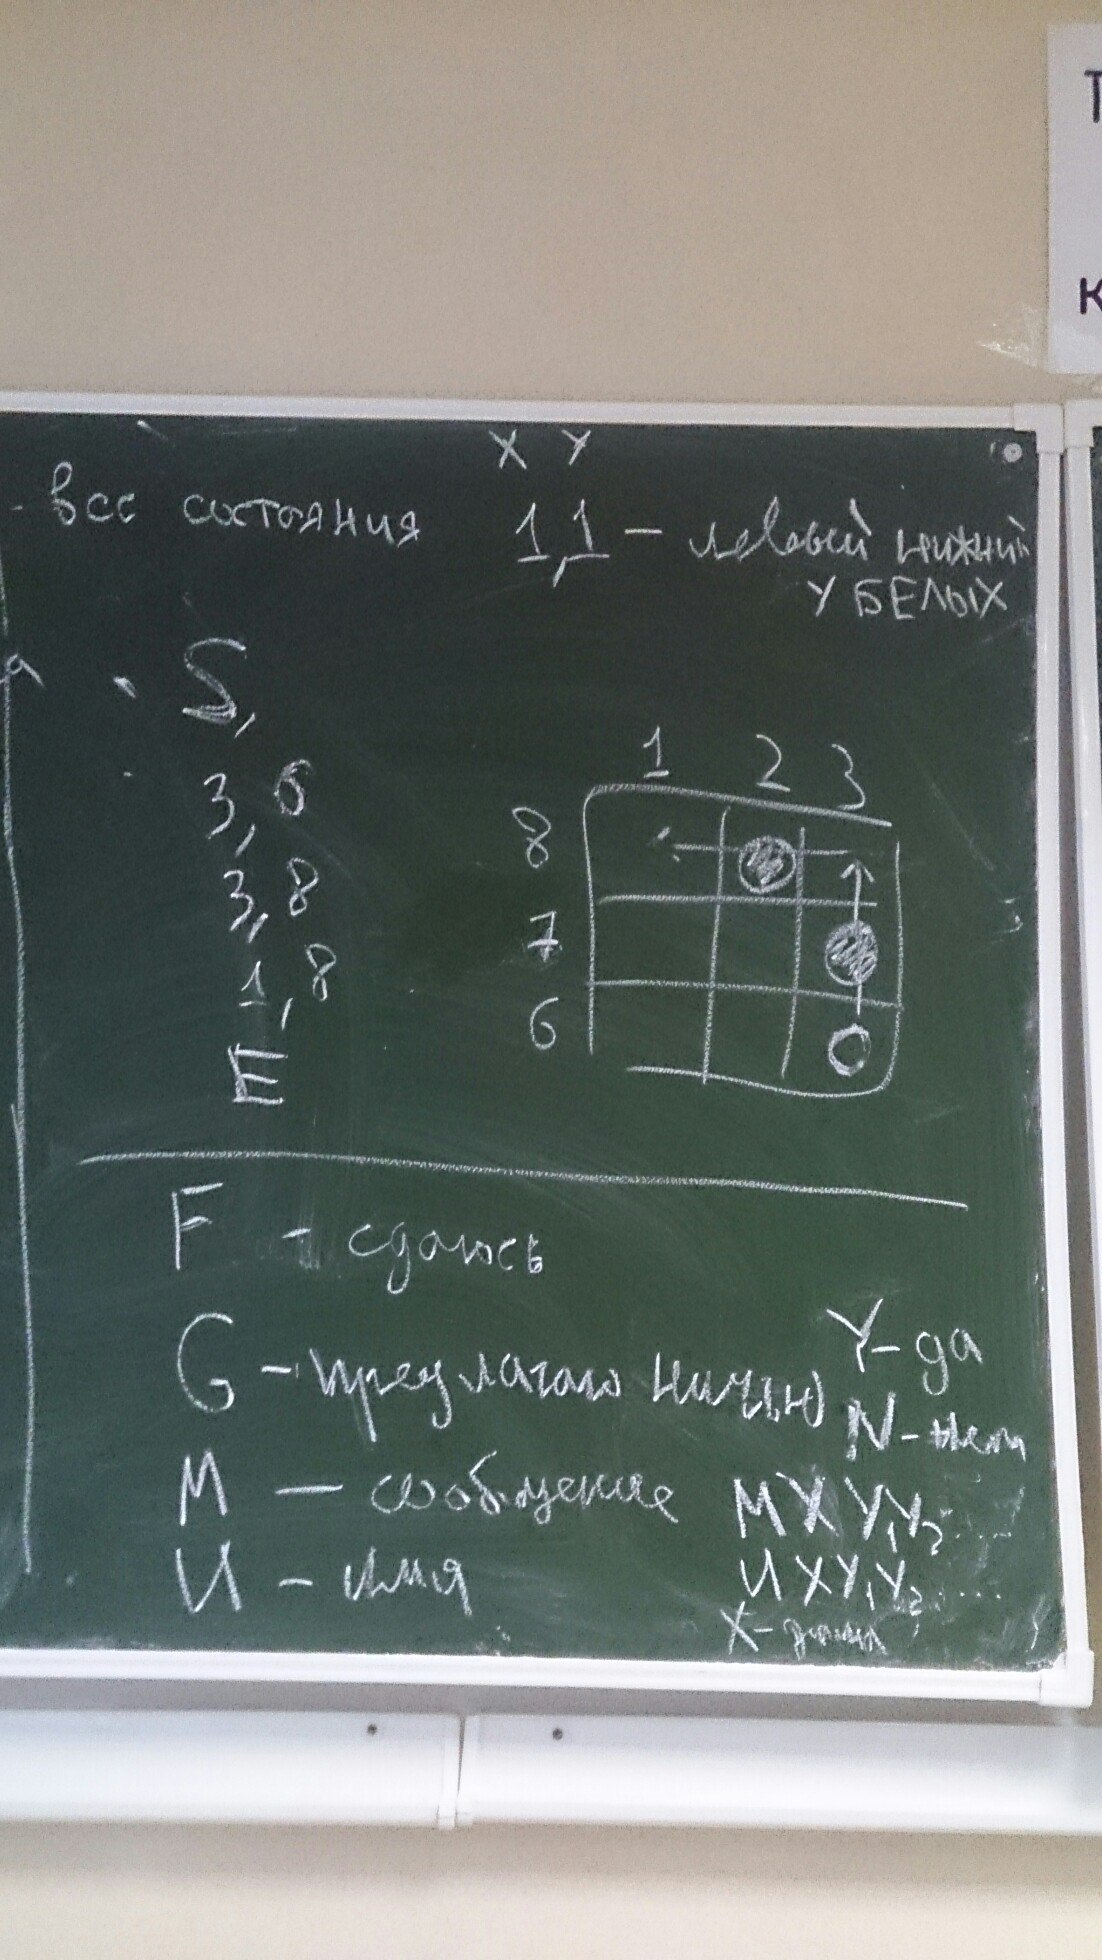 Т
К
X Y
- все состояния
1,1 - левый нижний
У БЕЛЫХ
я
S,
3, 6
3, 8
1, 8
E
1 2 3
8
7
6
F - сдаюсь
G - предлагаю ничью
Y - да
N - нет
M - сообщение M X Y₁Y₂ ....
U - имя U X Y₁Y₂ ....
X -